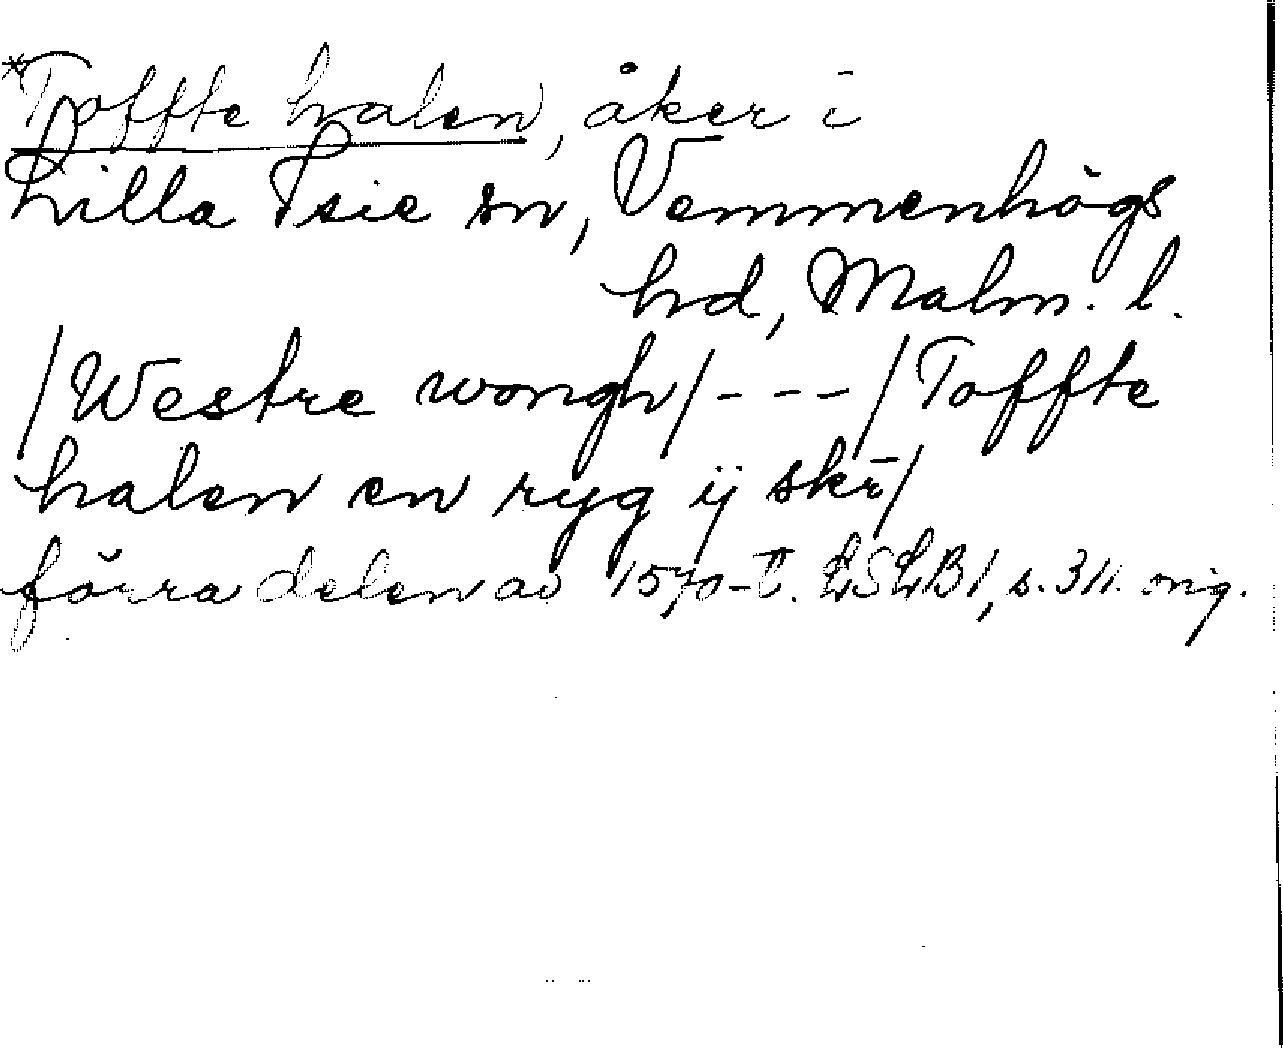 *Toffte halen, åker i
Lilla Isie sn, Vemmenhögs
hd, Malm. l.
/Westre wongh/---/Toffte
halen en ryg ij skr̄/
förra delen av 1570-t. LSLB1, s. 311. orig.